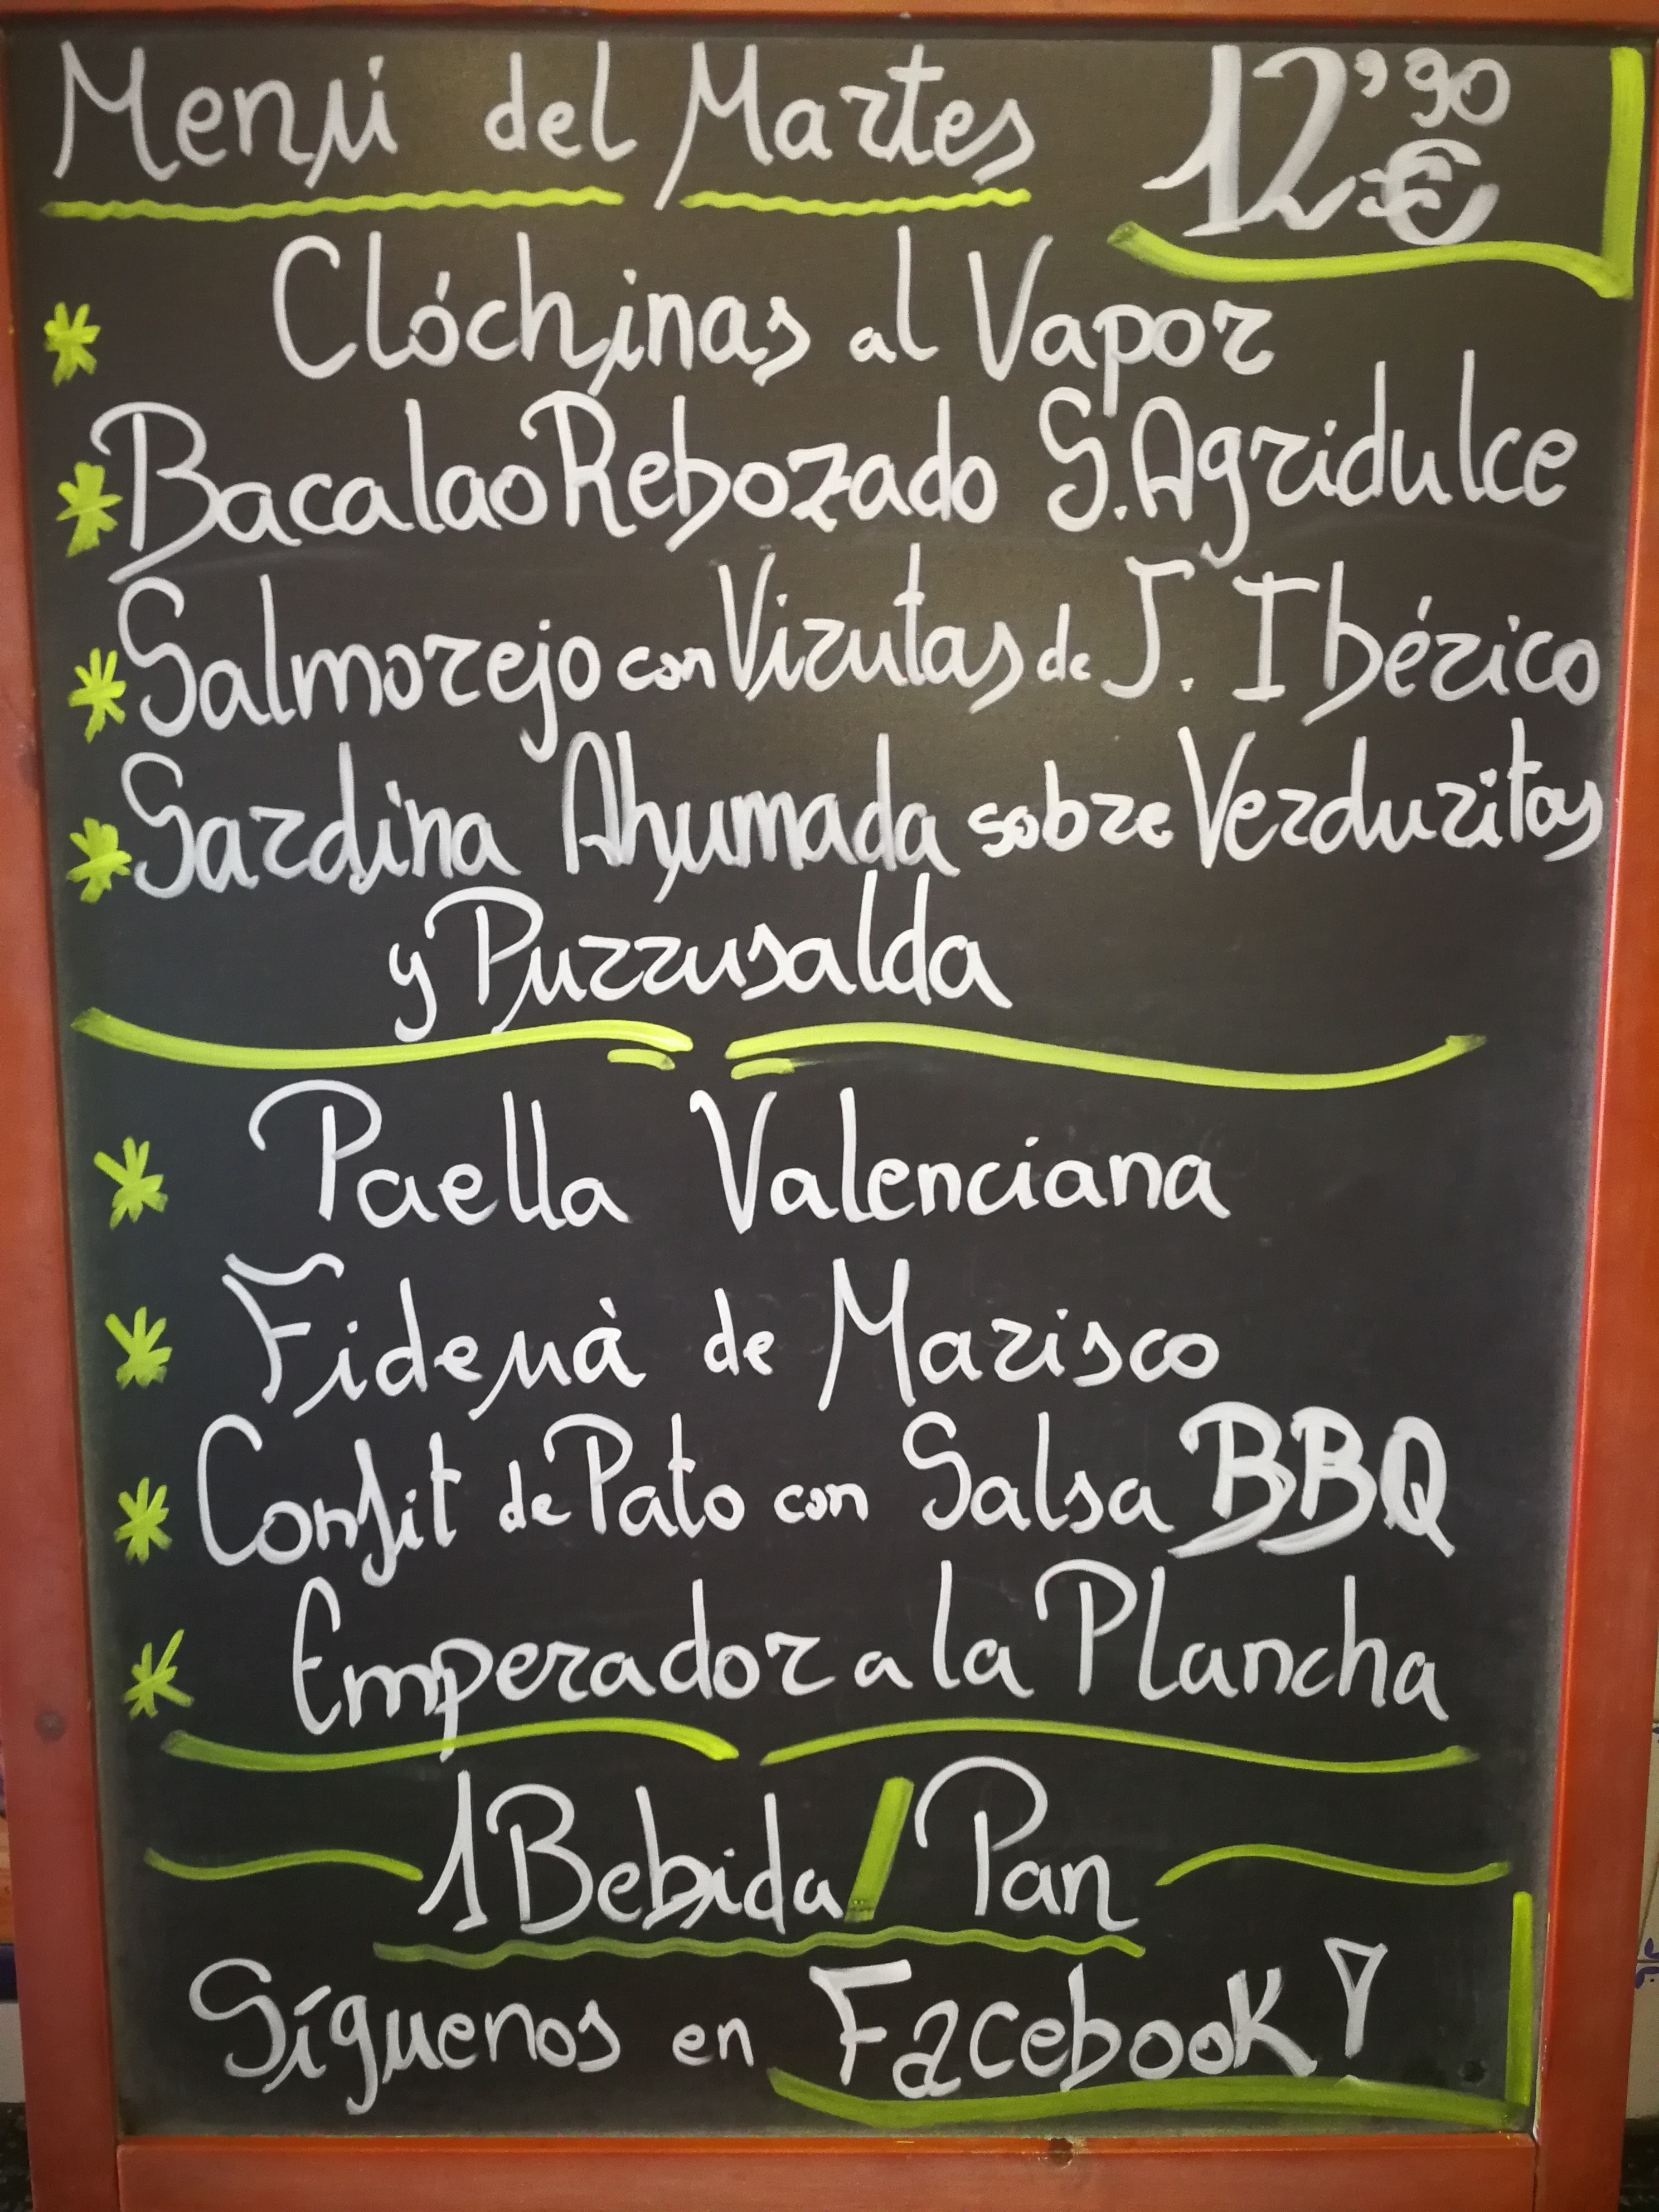 Menú del Martes 12'90 €
* Clóchinas al Vapor
* Bacalao Rebozado S. Agridulce
* Salmorejo con Virutas de J. Ibérico
* Sardina Ahumada sobre Verduritas
y Purrusalda
* Paella Valenciana
* Fideuà de Marisco
* Confit de Pato con Salsa BBQ
* Emperador a la Plancha
1 Bebida / Pan
Síguenos en Facebook!